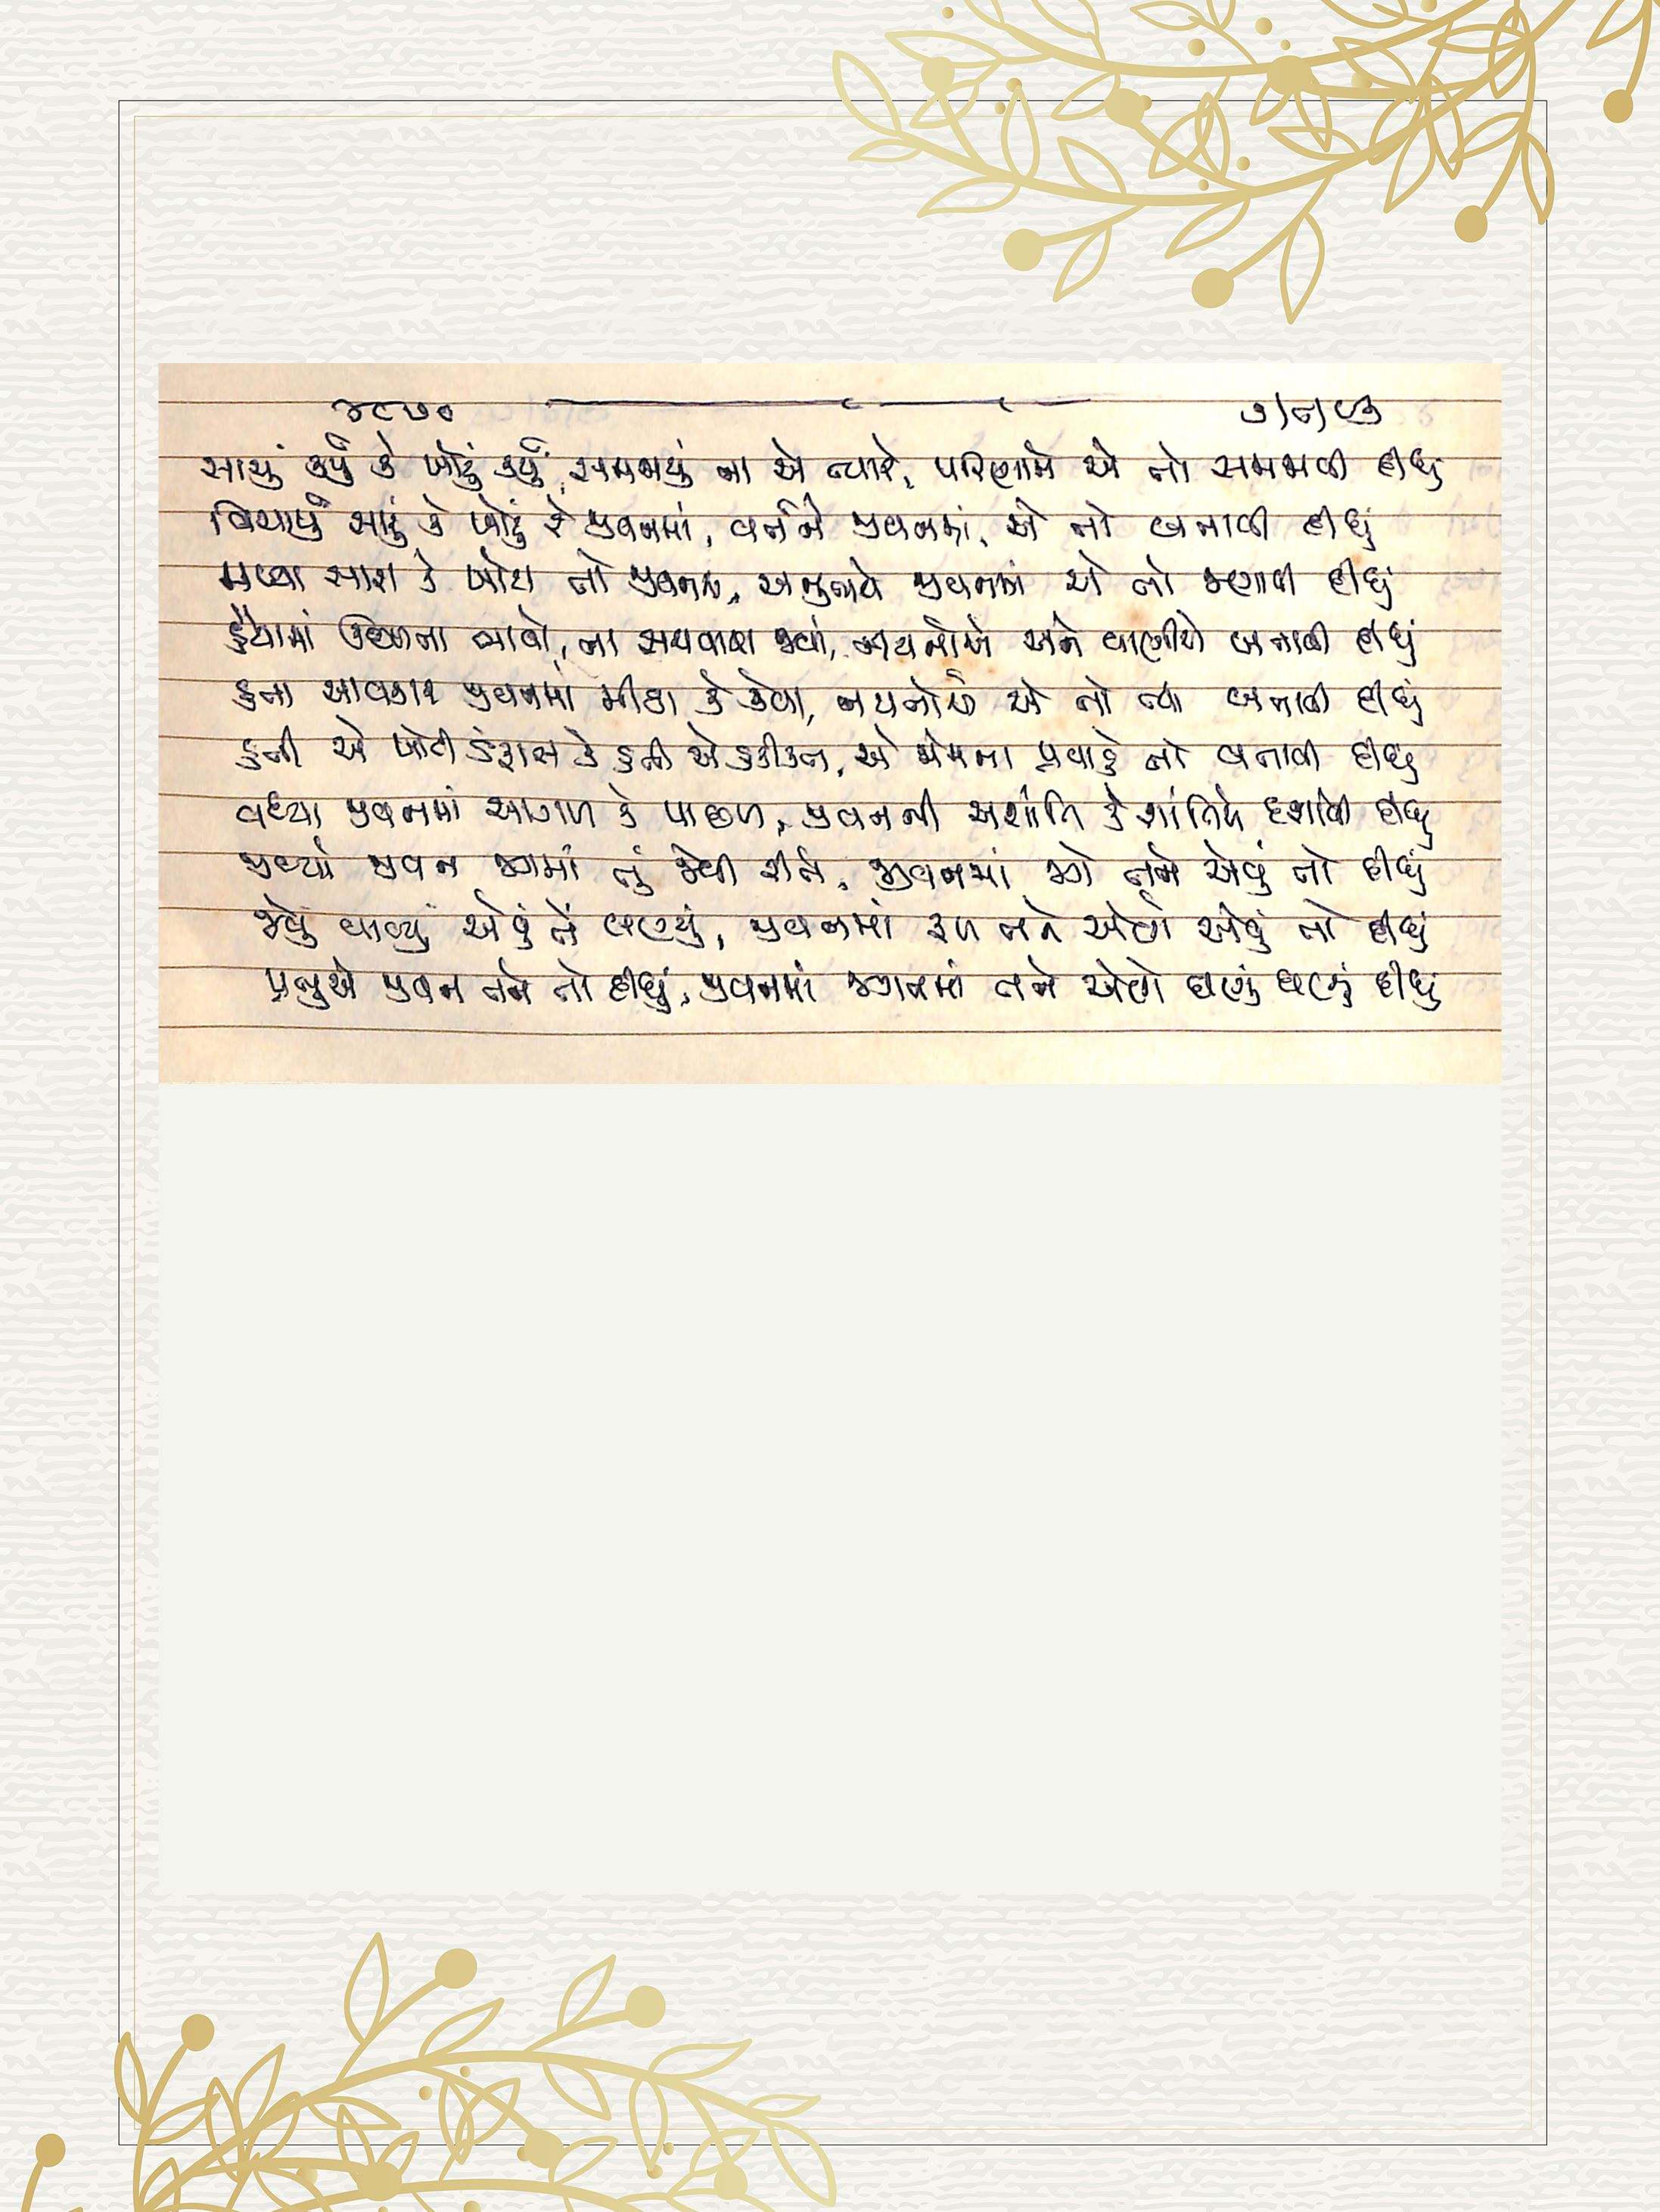 ૪૮૭૦ ૭/૮/૯૩
સાચું કર્યું કે ખોટું કર્યું, સમજાયું ના એ ત્યારે, પરિણામે એ તો સમજાવી દીધું
વિચાર્યું સારું કે ખોટું રે જીવનમાં, વર્તને જીવનમાં, એ તો બનાવી દીધું
મળ્યા સારા કે ખોટા તો જીવનમાં, અનુભવે જીવનમાં એ તો જણાવી દીધું
હૈયામાં ઉછળતા ભાવો, ના સચવાયા જ્યાં, નયનોએ અને વાણીએ બતાવી દીધું
હતા આવકાર જીવનમાં મીઠા કે કેવા, નયનોએ એ તો ત્યાં બતાવી દીધું
હતી એ ખોટી કે હતી એ હકીકત, એ પ્રેમના પ્રવાહે તો બતાવી દીધું
વધ્યા જીવનમાં આગળ કે પાછળ, જીવનની અશાંતિ કે શાંતિએ દર્શાવી દીધું
જીવ્યો જીવન જગમાં તું જેવી રીતે, જીવનમાં જગે તને એવું તો દીધું
જેવું વાવ્યું એવું તેં લણ્યું, જીવનમાં ફળ તને એણે એવું તો દીધું
પ્રભુએ જીવન તને તો દીધું, જીવનમાં જગતમાં તને એણે ઘણું ઘણું દીધું